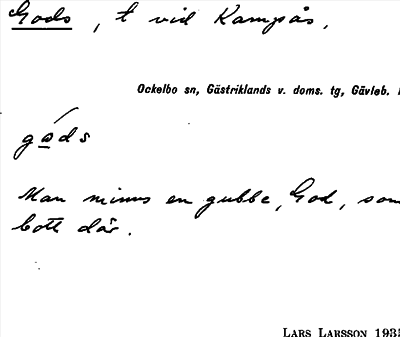 Gods, t vid Kampås.
Ockelbo sn, Gästriklands v. doms. tg, Gävleb.
Man minns en gubbe, God, som
bott där.
LARS LARSSON 193